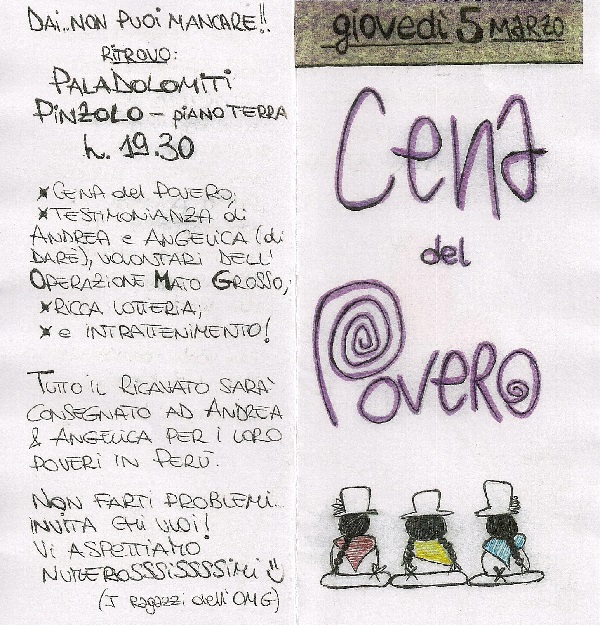 DAI..NON PUOI MANCARE!!
RITROVO:
PALADOLOMITI
PINZOLO - PIANO TERRA
h. 19.30
*CENA del POVERO;
*TESTIMONIANZA di
ANDREA e ANGELICA (di
DARE'), VOLONTARI DELL'
OPERAZIONE MATO GROSSO;
*RICCA LOTTERIA;
*e INTRATTENIMENTO!
TUTTO IL RICAVATO SARA'
CONSEGNATO AD ANDREA
& ANGELICA PER I LORO
POVERI IN PERÙ.
NON FARTI PROBLEMI..
INVITA CHI VUOI!
VI ASPETTIAMO
NUMEROSSSISSSSIMI
(I Ragazzi dell'OMG)
giovedì 5 MARZO
Cena
del
Povero